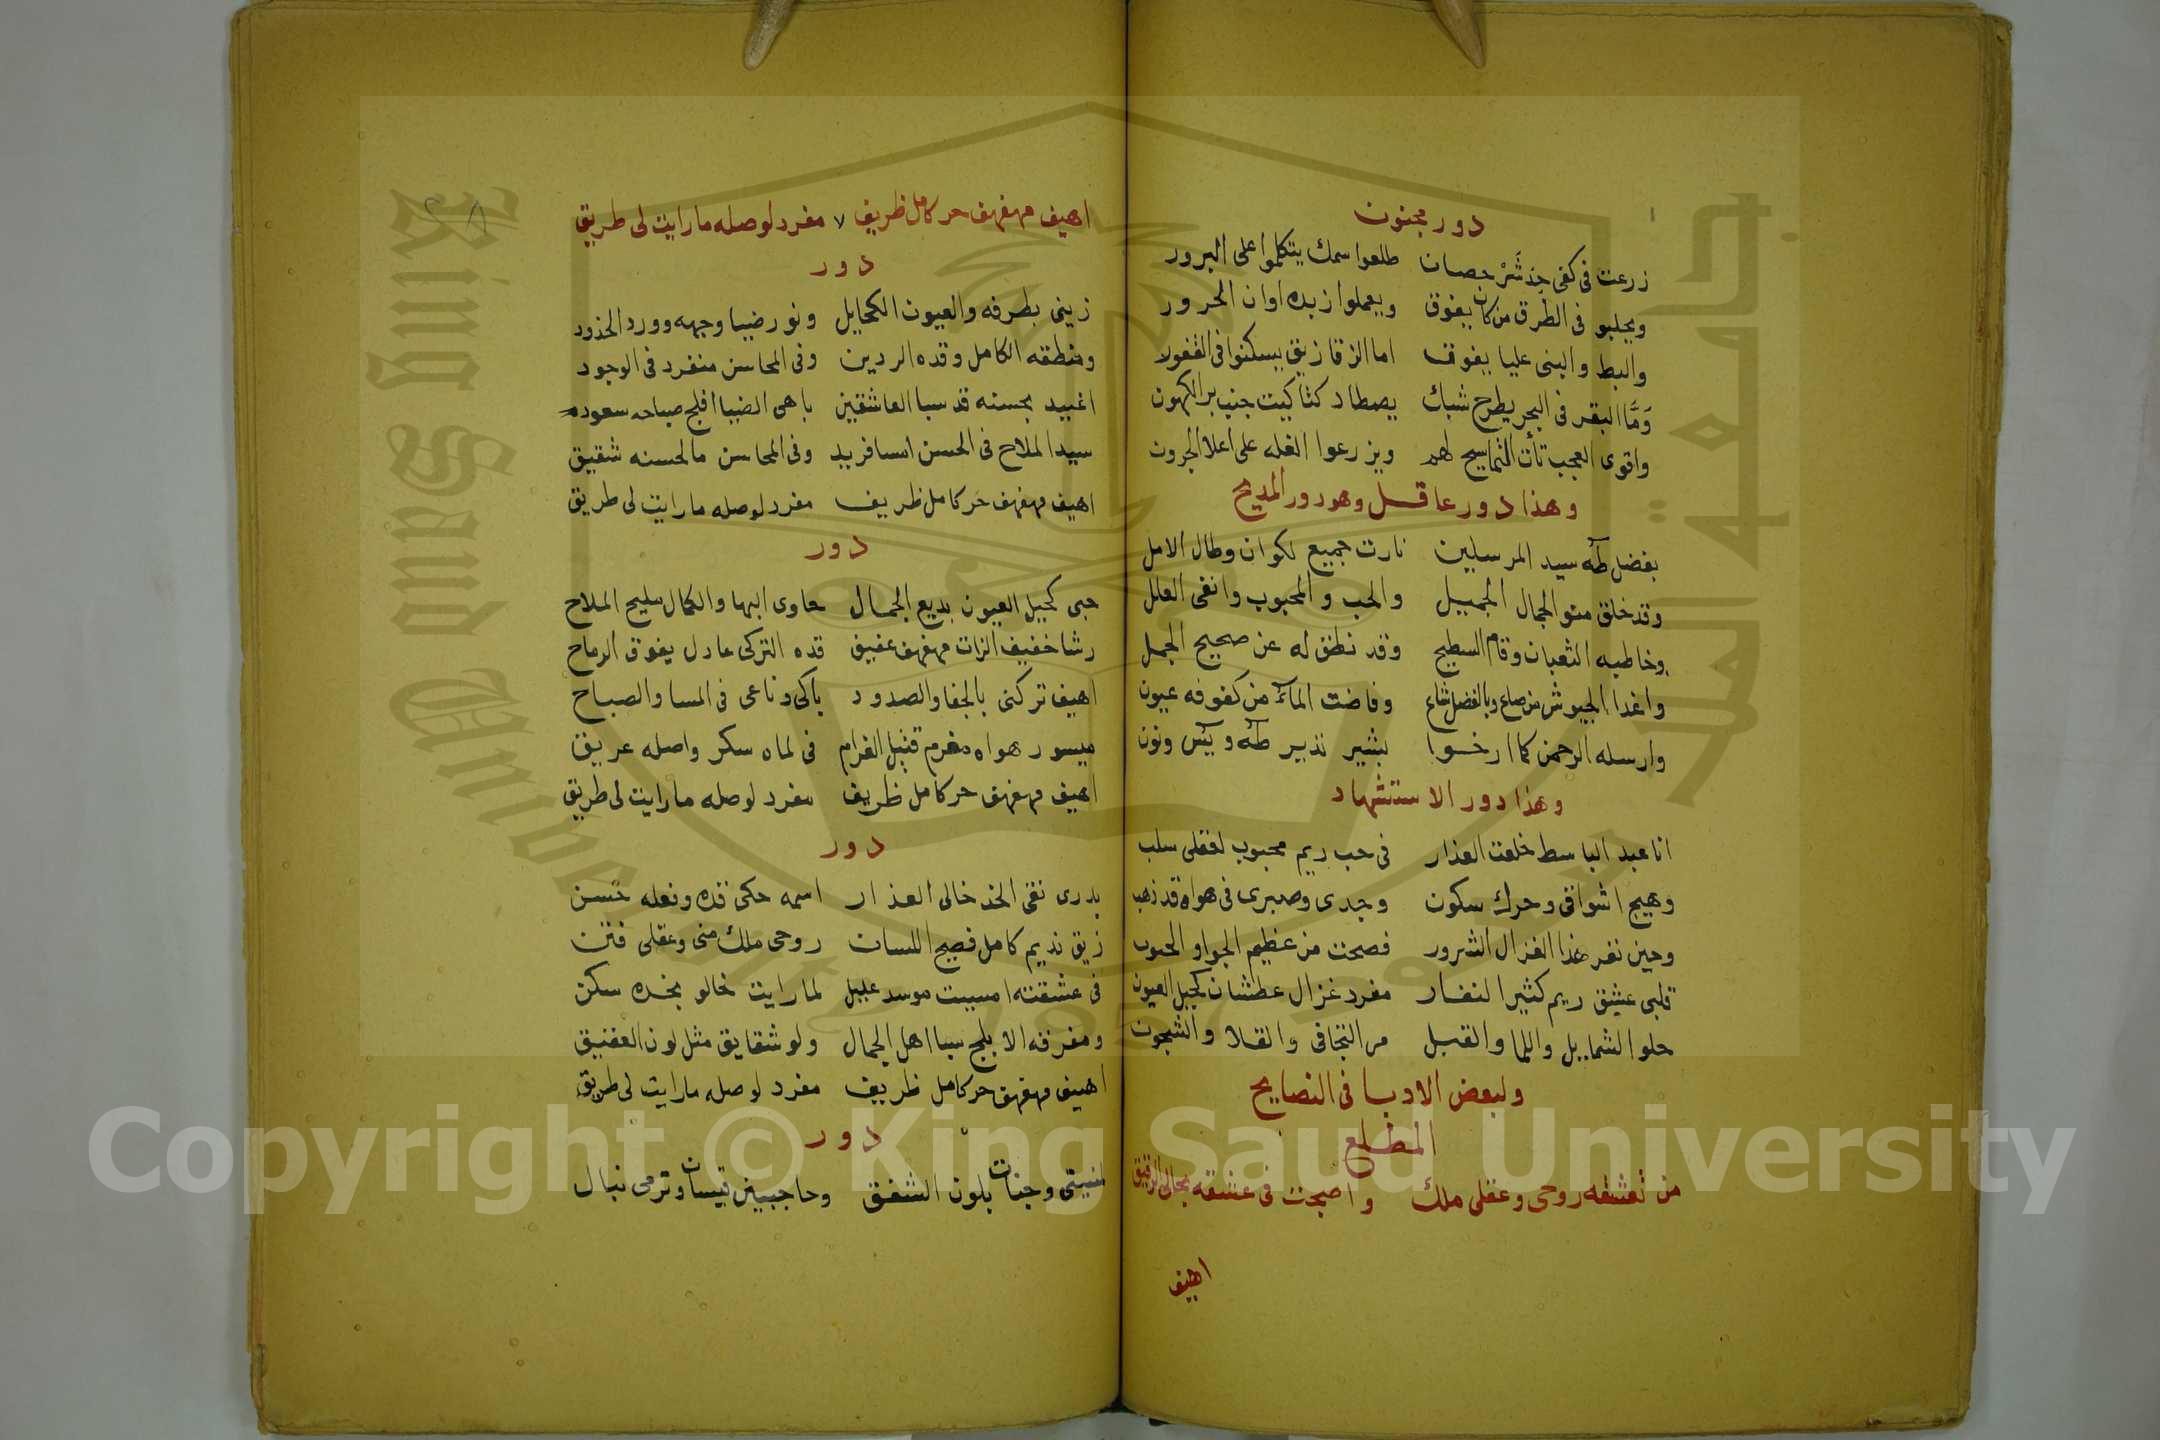 دور مجنون
زرعت فى كفى جذشر حصان طلعوا سمك يتكلموا على البرور
ويجلبو فى الطرق من كان يفوق ويعملوا زبده اوان الحرور
والبط والبنى عليا يفوق اما الزقازيق بيسكنوا فى القفولا
وما البقر فى البحر يطرح شباك يصطاد كتاكيت جنب بر الكهون
واقوى العجب تأت التماسيح لهم ويزرعوا الغله على اعلا الجرون
وهذا دور عاقل وهو دور المديح
بفضل طه سيد المرسلين نارت جميع لكوان وطال الامل
وقد خلق منو الجمال الجميل والحب والمحبوب وانفى العلل
وخاطبه الثعبان وقام السطيح وقد نطق له عن صحيح الجمل
واغدا الجيوش من صاع وبالفضل شاع وفاضت المآء من كفوفه عيون
وارسله الرحمن كما ارخوا بشير نذير طه ويس ونون
وهذا دور الاستشهاد
انا عبد الباسط خلعت العذار فى حب ريم محبوب لعقلى سلب
وهيج اشواقى وحرك سكون وجدى وصبرى فى هواه قد ذهب
وحين نفر هذا الغزال الشرور فصحت من عظيم الجوا و
قلبى عشق ريم كثير النفار مفرد غزال عطشان كحيل العيون
حلو الشمايل واللما والقبل مر التجافى والقلا والشجون
ولبعض الادبا فى النصايح
المطلع
من تعشقه روحى وعقلى ملك واصبحت فى عشقه بحال الرقيق
اهيف
اهيف مهفهف حر كامل ظريف ٧ مفرد لوصله ما رايت لى طريق
دور
زينى بطرفه والعيون الكحايل ونور ضيا وجهه وورد الخذود
ومنطقه الكامل وقده الردين وفى المحاسن منفرد فى الوجود
اغييد بحسنه قد سبا العاشقين باهى الضيا افلج صباحه سعوده
سيد الملاح فى الحسن انسا فريد وفى المحاسن ما لحسنه شقيق
اهيف مهفهف حر كامل ظريف مفرد لوصله ما رايت لى طريق
دور
حبى كحيل العيون بديع الجمال حاوى البها والكمال مليح الملاح
رشا خفيف الزات مهفهف عفيق قده التركى عادل يفوق الرماح
اهيف تركنى بالجفا والصدود باكى وناعى فى المسا والصباح
ميسور هواه مغرم قتيل الغرام فى لماه سكر واصله عريق
اهيف مهفهف حر كامل ظريف مفرد لوصله ما رايت لى طريق
دور
بدرى نقى الخد خالى العذار اسمه حكى قده وفعله حسن
زيق نديم كامل فصيح اللسان روحى ملك منى وعقلى فتن
فى عشقته امسيت موسد عليل لما رايت خالو بخده سكن
ومفرقه الابلج سبا اهل الجمال ولو شقايق مثل لون العقيق
اهيف مهفهف حر كامل ظريف مفرد لوصله ما رايت لى طريق
دور
وجنات بلون الشفق وحاجبين قيسان وترمى نبال
جامعة الملك سعود
King Saud University
Copyright © King Saud University